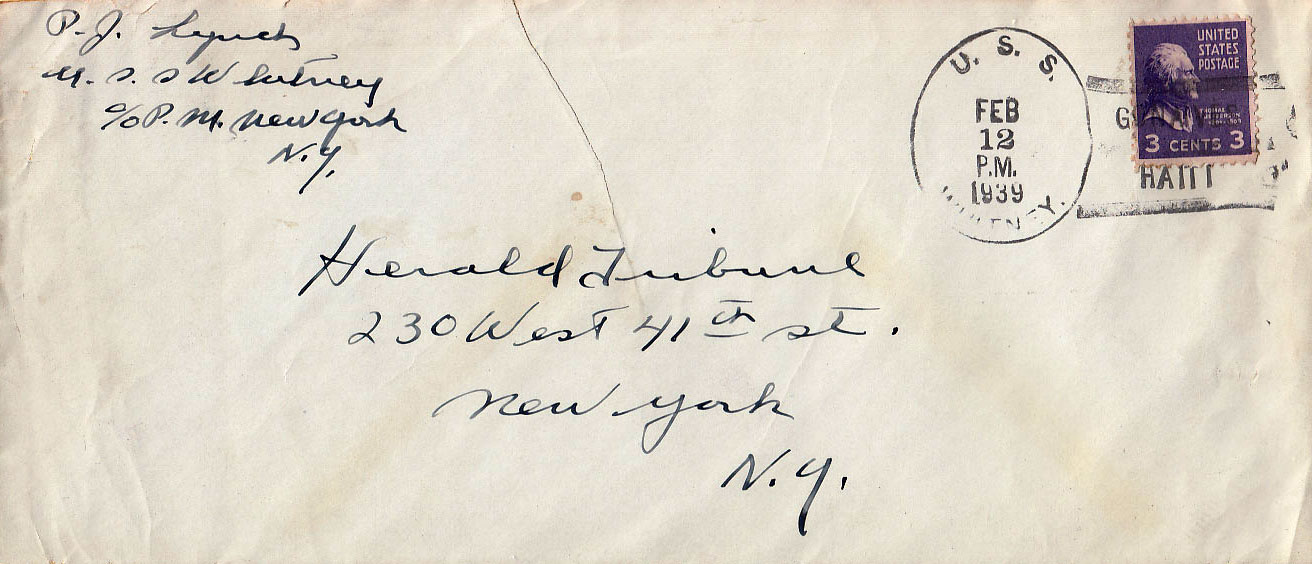 P. J. Lynch
U. S. S Whitney
c/o P. M. New York
N. Y.
U. S. S.
FEB
12
P.M.
1939
WHITNEY.
UNITED
STATES
POSTAGE
THOMAS
JEFFERSON
3 CENTS 3
HAITI
Herald Tribune
230 West 41th st.
New York
N. Y.